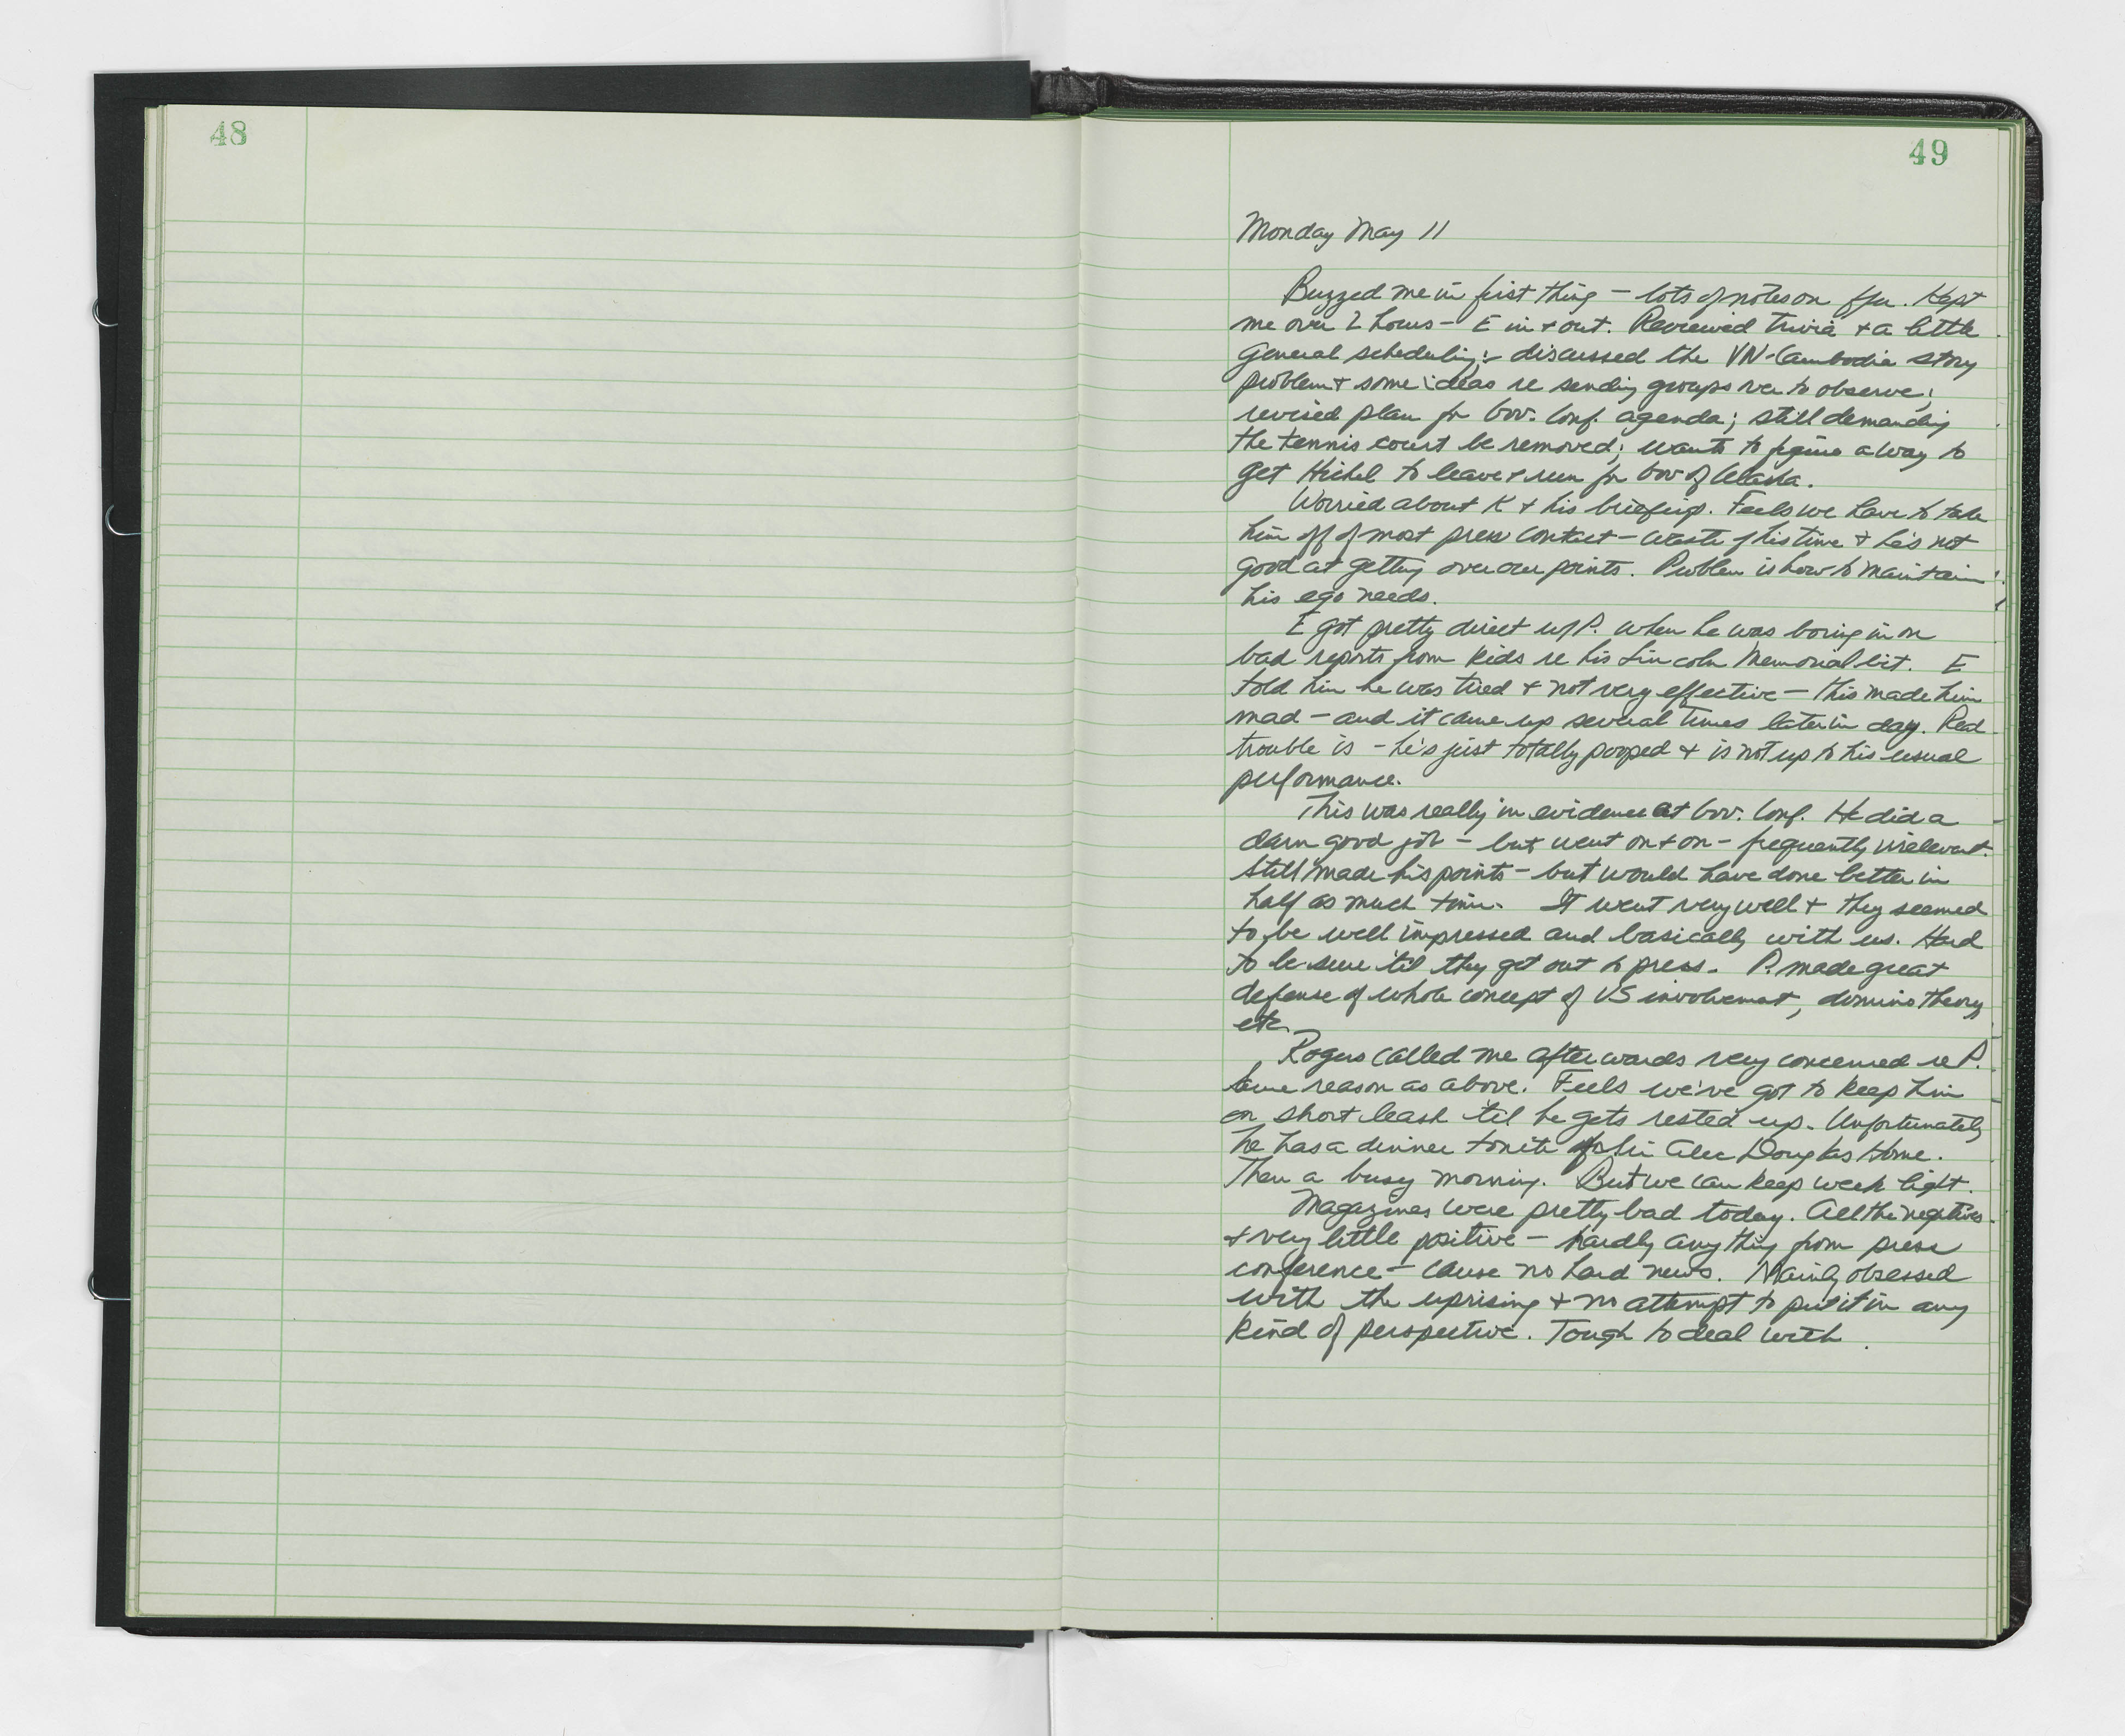 48
49
Monday May 11
Buzzed me in first thing – lots of notes on ffu. Kept
me over 2 hours – E in & out. Reviewed trivia & a little
general scheduling; – discussed the VN-Cambodia story
problem & some ideas re sending groups over to observe;
revised plan for Gov. Conf. agenda; still demanding
the tennis court be removed; wants to figure a way to
get Hickel to leave & run for Gov of Alaska.
Worried about K & his briefings. Feels we have to take
him off of most press contact – waste of his time & he's not
good at getting over our points. Problem is how to maintain
his ego needs.
E got pretty direct w/ P. when he was boring in on
bad reports from kids re his Lincoln Memorial bit. E
told him he was tired & not very effective – this made him
mad – and it came up several times later in day. Real
trouble is – he's just totally pooped & is not up to his usual
performance.
This was really in evidence at Gov. Conf. He did a
darn good job – but went on & on – frequently irrelevant.
Still made his points – but would have done better in
half as much time. It went very well & they seemed
to be well impressed and basically with us. Hard
to be sure 'til they get out to press. P. made great
defense of whole concept of US involvement, domino theory
etc.
Rogers called me afterwards very concerned re P.
Same reason as above. Feels we've got to keep him
on short leash 'til he gets rested up. Unfortunately
he has a dinner tonite for Sir Alec Douglas Home.
Then a busy morning. But we can keep week light.
Magazines were pretty bad today. All the negatives
& very little positive – hardly anything from press
conference – cause no hard news. Mainly obsessed
with the uprising & no attempt to put it in any
kind of perspective. Tough to deal with.